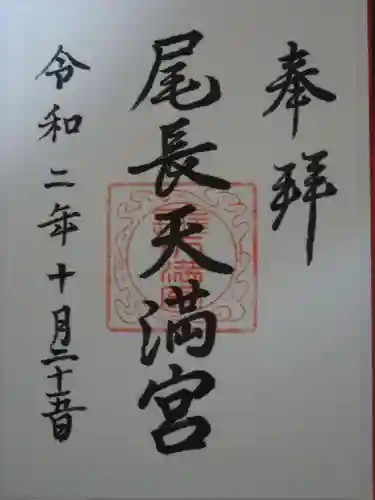 奉拝
尾長天満宮
令和二年十月二十五日